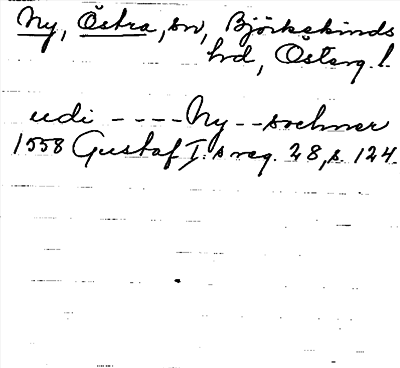 Ny, Östra, sn, Björkekinds
hd, Österg. l.
udi ---- Ny -- sochner
1558 Gustaf I:s reg. 28, s. 124.